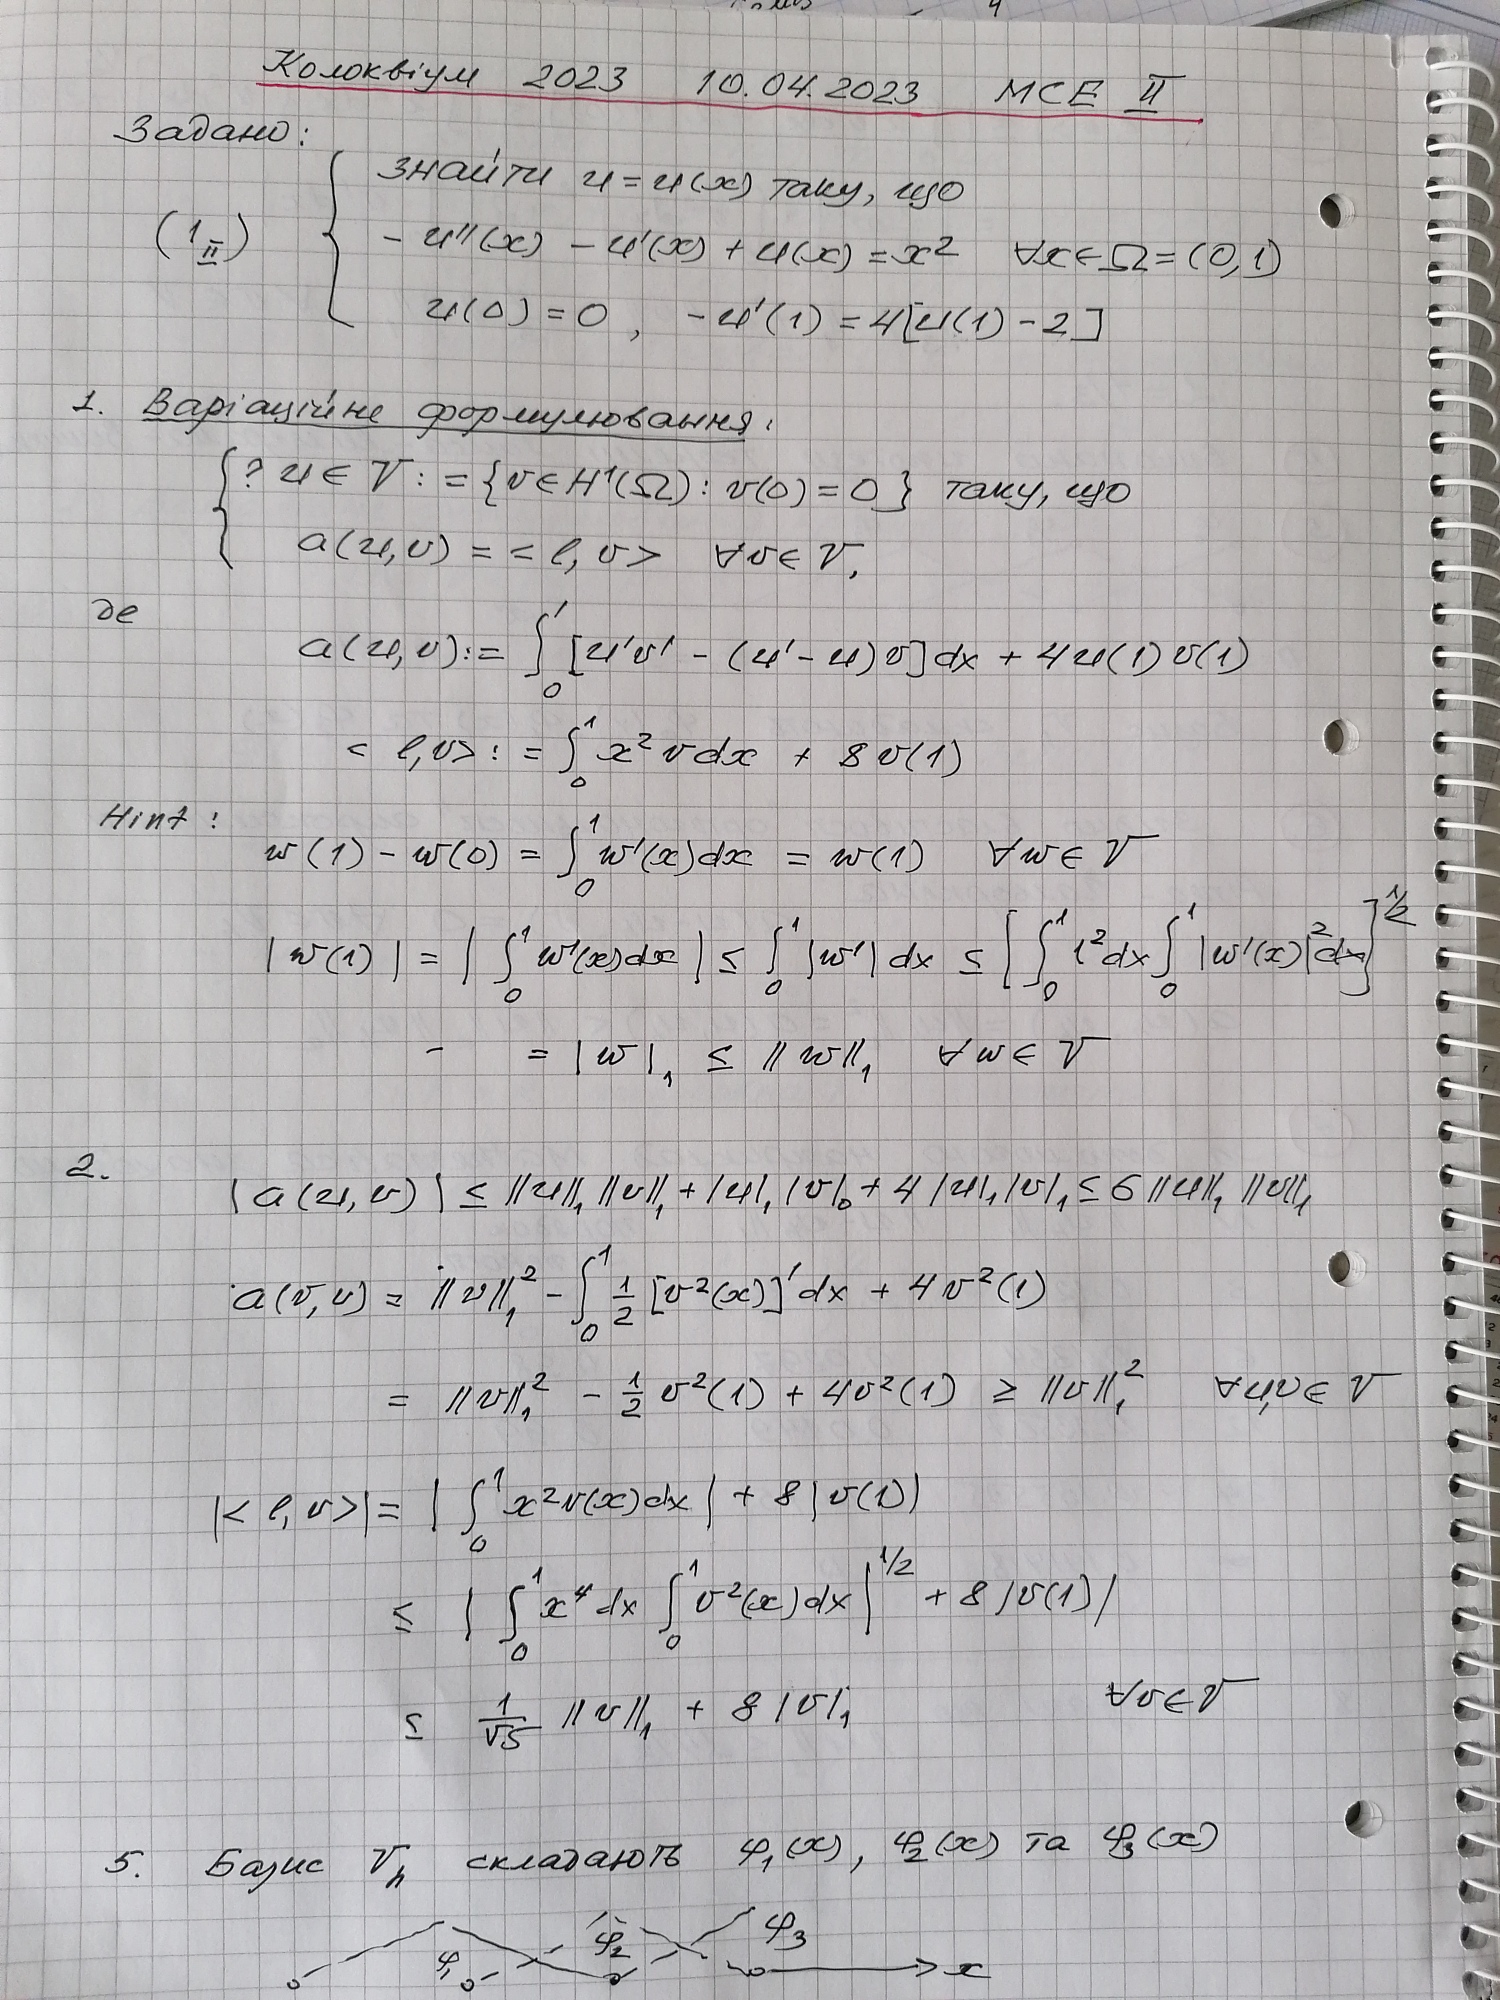 Колоквіум 2023 10.04.2023 МСЕ II
Задано:
знайти u = u(x) таку, що
(1_II) - u''(x) - u'(x) + u(x) = x² ∀x ∈ Ω = (0,1)
u(0) = 0, -u'(1) = 4[u(1) - 2]
1. Варіаційне формулювання:
? u ∈ V := {v ∈ H¹(Ω) : v(0) = 0} таку, що
a(u,v) = <l,v> ∀v ∈ V,
де
a(u,v) := ∫₀¹ [u'v' - (u' - u)v] dx + 4u(1)v(1)
<l,v> := ∫₀¹ x² v dx + 8v(1)
Hint:
w(1) - w(0) = ∫₀¹ w'(x)dx = w(1) ∀w ∈ V
|w(1)| = |∫₀¹ w'(x)dx| ≤ ∫₀¹ |w'| dx ≤ [∫₀¹ 1² dx ∫₀¹ |w'(x)|² dx]^{1/2}
- = |w|₁ ≤ ||w||₁ ∀w ∈ V
2. |a(u,v)| ≤ ||u||₁ ||v||₁ + |u|₁ |v|₀ + 4|u|₁ |v|₁ ≤ 6||u||₁ ||v||₁
a(v,v) = ||v||₁² - ∫₀¹ ½ [v²(x)]' dx + 4v²(1)
= ||v||₁² - ½ v²(1) + 4v²(1) ≥ ||v||₁² ∀u,v ∈ V
|<l,v>| = |∫₀¹ x² v(x)dx| + 8|v(1)|
≤ |∫₀¹ x⁴ dx ∫₀¹ v²(x)dx|^{1/2} + 8|v(1)|
≤ 1/√5 ||v||₁ + 8|v|₁ ∀v ∈ V
5. Базис V_h складають φ₁(x), φ₂(x) та φ₃(x)
φ₁ φ₂ φ₃ x